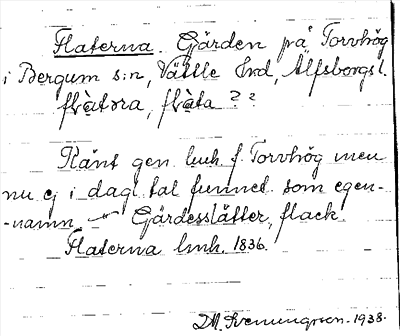 Flaterna. Gärden på Torvhög
i Bergum s:n, Vättle hrd, Älfsborgs l.
flàtəra, flàta ??
Känt gen lmh. f. Torvhög men
nu ej i dagl. tal funnet som egen-
-namn. — Gärdesslätter, flack.
Flaterna lmh. 1836.
Svenungsson. 1938.